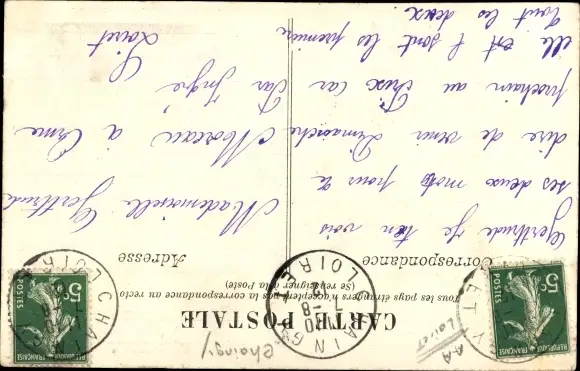 CARTE POSTALE
Tous les pays étrangers n'acceptent pas la correspondance au recto
(Se renseigner à la Poste)
Correspondance
Adresse
Gertrude je t'en vois
ses deux mots pour te
dire de venir Dimanche
prochain au Prix car
elle est l sont les premier
tout les deux
Mademoiselle Gertrude
Moreau à Orme
Par Ingré
Loiret
CHAINGY
LOIRET
30
8
Chaingy
A-A
Loiret
5c
POSTES
REPUBLIQUE FRANÇAISE
5c
POSTES
REPUBLIQUE FRANÇAISE